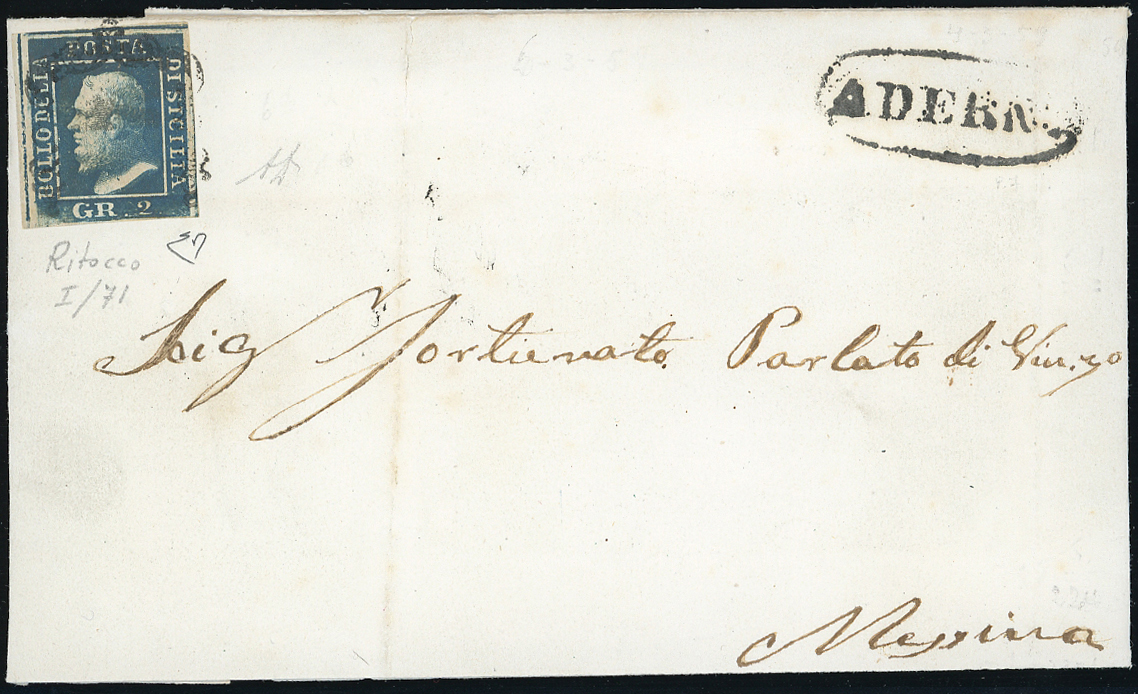 BOLLO DELLA
POSTA
DI SICILIA
GR. 2
ADERN
Ritocco
I/71
Sig Fortunato Parlato di Vin.zo
Messina